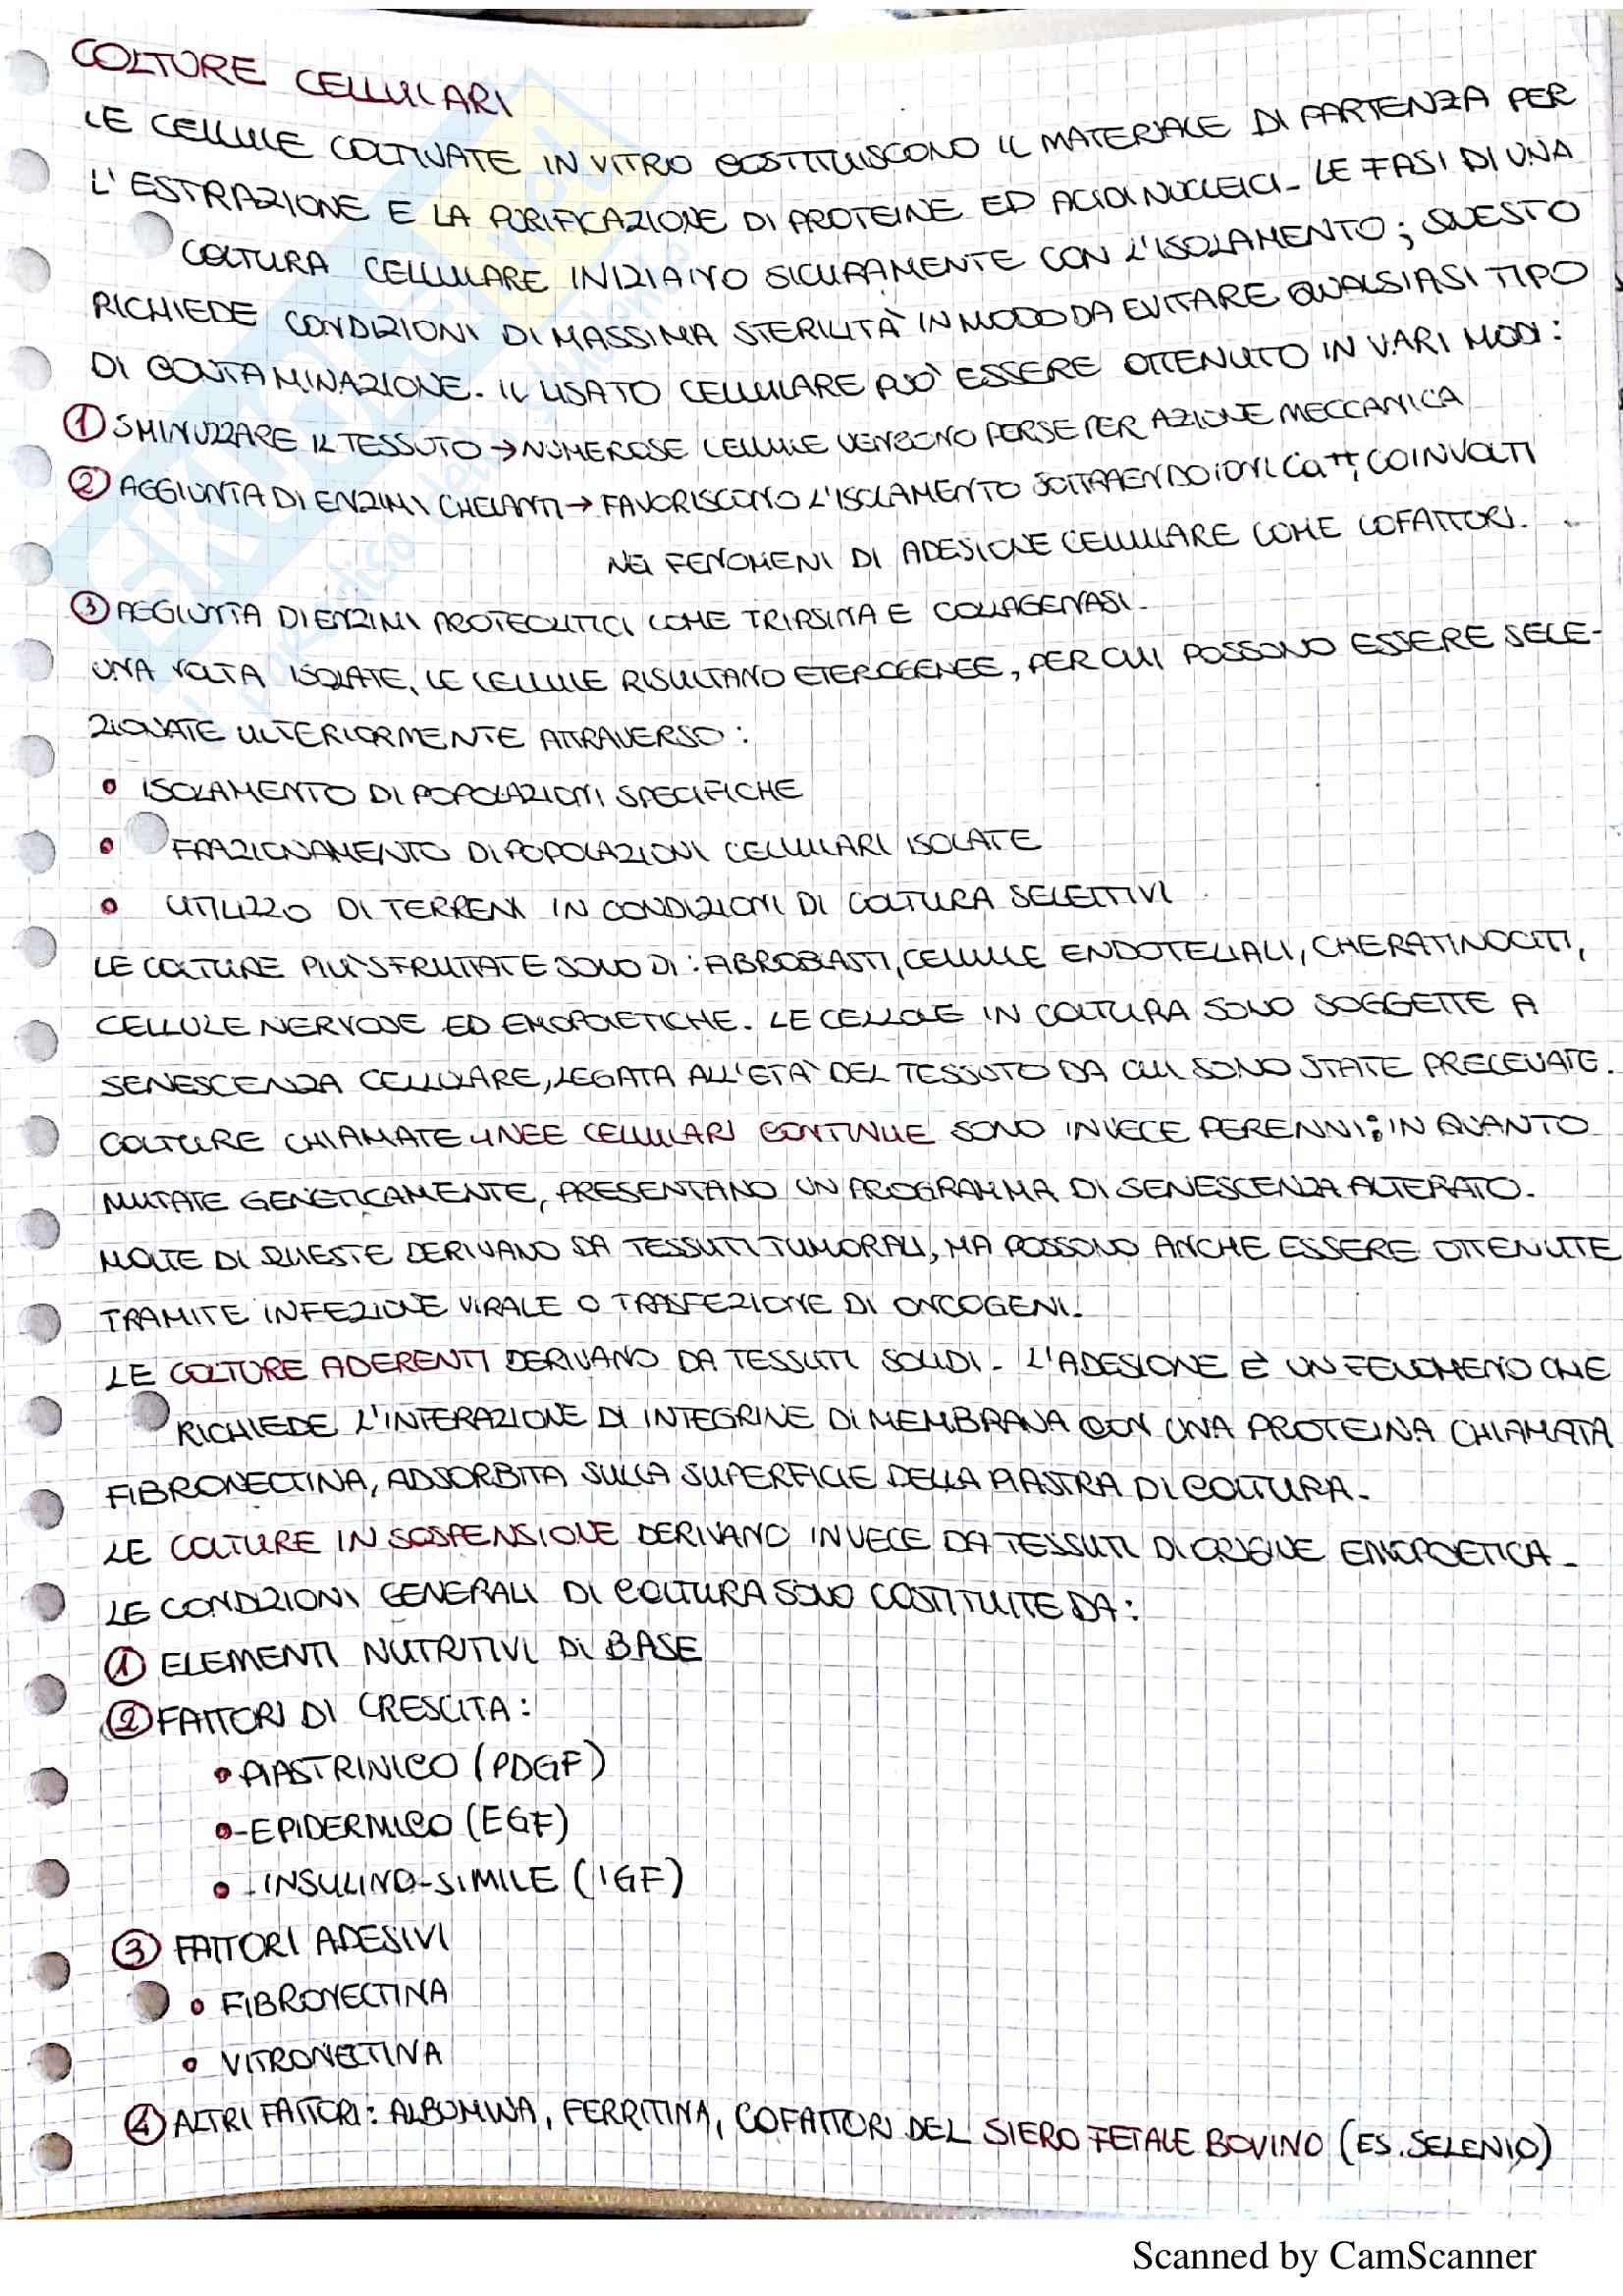 COLTURE CELLULARI
LE CELLULE COLTIVATE IN VITRO COSTITUISCONO IL MATERIALE DI PARTENZA PER
L'ESTRAZIONE E LA PURIFICAZIONE DI PROTEINE ED ACIDI NUCLEICI. LE FASI DI UNA
COLTURA CELLULARE INIZIANO SICURAMENTE CON L'ISOLAMENTO; QUESTO
RICHIEDE CONDIZIONI DI MASSIMA STERILITÀ IN MODO DA EVITARE QUALSIASI TIPO
DI CONTAMINAZIONE. IL LISATO CELLULARE PUÒ ESSERE OTTENUTO IN VARI MODI:
① SMINUZZARE IL TESSUTO → NUMEROSE CELLULE VENGONO PERSE PER AZIONE MECCANICA
② AGGIUNTA DI ENZIMI CHELANTI → FAVORISCONO L'ISOLAMENTO SOTTRAENDO IONI Ca++, COINVOLTI
NEI FENOMENI DI ADESIONE CELLULARE COME COFATTORI.
③ AGGIUNTA DI ENZIMI PROTEOLITICI COME TRIPSINA E COLLAGENASI.
UNA VOLTA ISOLATE, LE CELLULE RISULTANO ETEROGENEE, PER CUI POSSONO ESSERE SELE-
ZIONATE ULTERIORMENTE ATTRAVERSO:
• ISOLAMENTO DI POPOLAZIONI SPECIFICHE
• FRAZIONAMENTO DI POPOLAZIONI CELLULARI ISOLATE
• UTILIZZO DI TERRENI IN CONDIZIONI DI COLTURA SELETTIVI
LE COLTURE PIÙ SFRUTTATE SONO DI: FIBROBLASTI, CELLULE ENDOTELIALI, CHERATINOCITI,
CELLULE NERVOSE ED EMOPOIETICHE. LE CELLULE IN COLTURA SONO SOGGETTE A
SENESCENZA CELLULARE, LEGATA ALL'ETÀ DEL TESSUTO DA CUI SONO STATE PRELEVATE.
COLTURE CHIAMATE LINEE CELLULARI CONTINUE SONO INVECE PERENNI; IN QUANTO
MUTATE GENETICAMENTE, PRESENTANO UN PROGRAMMA DI SENESCENZA ALTERATO.
MOLTE DI QUESTE DERIVANO DA TESSUTI TUMORALI, MA POSSONO ANCHE ESSERE OTTENUTE
TRAMITE INFEZIONE VIRALE O TRASFEZIONE DI ONCOGENI.
LE COLTURE ADERENTI DERIVANO DA TESSUTI SOLIDI. L'ADESIONE È UN FENOMENO CHE
RICHIEDE L'INTERAZIONE DI INTEGRINE DI MEMBRANA CON UNA PROTEINA CHIAMATA
FIBRONECTINA, ADSORBITA SULLA SUPERFICIE DELLA PIASTRA DI COLTURA.
LE COLTURE IN SOSPENSIONE DERIVANO INVECE DA TESSUTI DI ORIGINE EMOPOETICA.
LE CONDIZIONI GENERALI DI COLTURA SONO COSTITUITE DA:
① ELEMENTI NUTRITIVI DI BASE
② FATTORI DI CRESCITA:
• PIASTRINICO (PDGF)
• -EPIDERMICO (EGF)
• -INSULINO-SIMILE (IGF)
③ FATTORI ADESIVI
• FIBRONECTINA
• VITRONECTINA
④ ALTRI FATTORI: ALBUMINA, FERRITINA, COFATTORI DEL SIERO FETALE BOVINO (ES. SELENIO)
Scanned by CamScanner